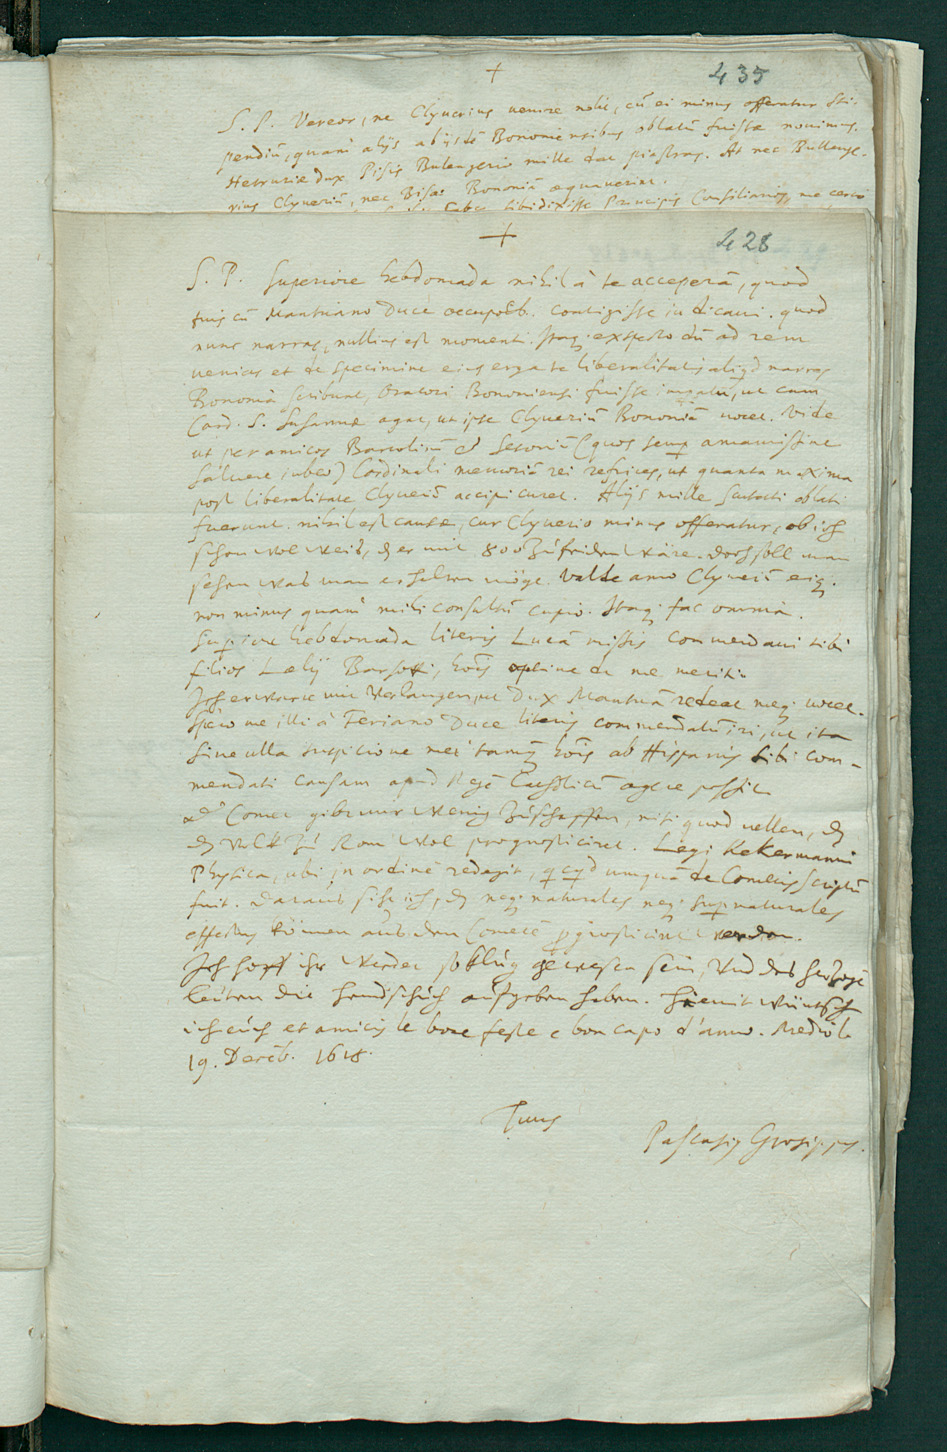 +
435
S. P. Vereor, ne Clyverius venire nolit, cũ ei minus offeratur sti-
pendiũ, quam alijs a Bononiensibus oblatũ fuisse novimus.
Hetruriæ Dux Pisis Bulengerio mille dat piastras. At nec Bulleng-
rius Clyveriũ, nec Pisæ Bononiã æquaverint.
sibi dixisse Principis Consiliarios, me certo
+
428
S. P. Superiore hebdomada nihil à te acceperã, quod
tuis cũ Mantuano Duce occupatõb. contigisse iudicavi. quod
nunc narras, nullius est momenti. Itaq; exspecto dũ ad rem
venias et de specimine eius erga te liberalitatis aliqd narres
Bononiã scribunt, Oratori Bononiensi fuisse, ut cum
Card. S. Susannæ agat, ut iste Clyveriũ Bononiã vocet. Vide
ut per amicos Bartolinũ et (quos semp amantissime
salvere iubeo) Cardinali memoriã rei refrices, ut quanta maxima
post liberalitate Clyveriũ accipi curet. Alijs mille Scutati oblati
fuerunt. nihil est causæ, cur Clyverio minus offeratur, ob ich
schon wol weis, dz er mit 800 zufriden wäre. doch soll man
sehen was man erhalten möge. Valde amo Clyveriũ eiq;
non minus quam mihi consultũ cupio. Itaq; fac omnia.
Supiore hebdomada literis Lucã missis commendavi tibi
filios Lelij Barsotti, hoĩs optime de me meriti.
Ich erwarte mit Verlangen, ut Dux Mantuã redeat meq; vocet.
Spero me illi à Feriano Duce literis commendatũ iri, ut ita
sine ulla suspicione mei tamq; hoĩs ab Hispanis sibi com-
mendati causam apud Regẽ Catholicũ agere possit.
Comet gibt mir wenig zuschaffen, nisi quod vellem, dz
dz Volk zu Rom wol prognosticiret. Legi Kekermanni
Physica, ubi in ordinẽ redegit, qcqd umquã de Cometis scriptũ
fuit. Daraus sihe ich, dz neq; naturales neq; supnaturales
effectus können aus den Cometẽ pgnosticiret werden.
Ich hoff ihr werdet so klug gewesen sein, und des herzogs
leuten die handschuch aufgeben haben. Hiemit wüntsch
ich euch et amicis le bone feste e bon capo d'anno. Mediol.
19. Decẽb. 1618.
Tuus
Pascasius Grosippus.